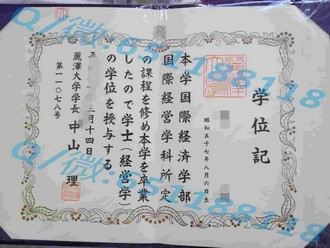 学位記
昭和五十七年八月六日生
本学国際経済学部
国際経営学科所定
の課程を修め本学を卒業
したので学士(経営学)
の学位を授与する
月十四日
麗澤大学学長 中山 理
第一一〇七八号
Q/微: